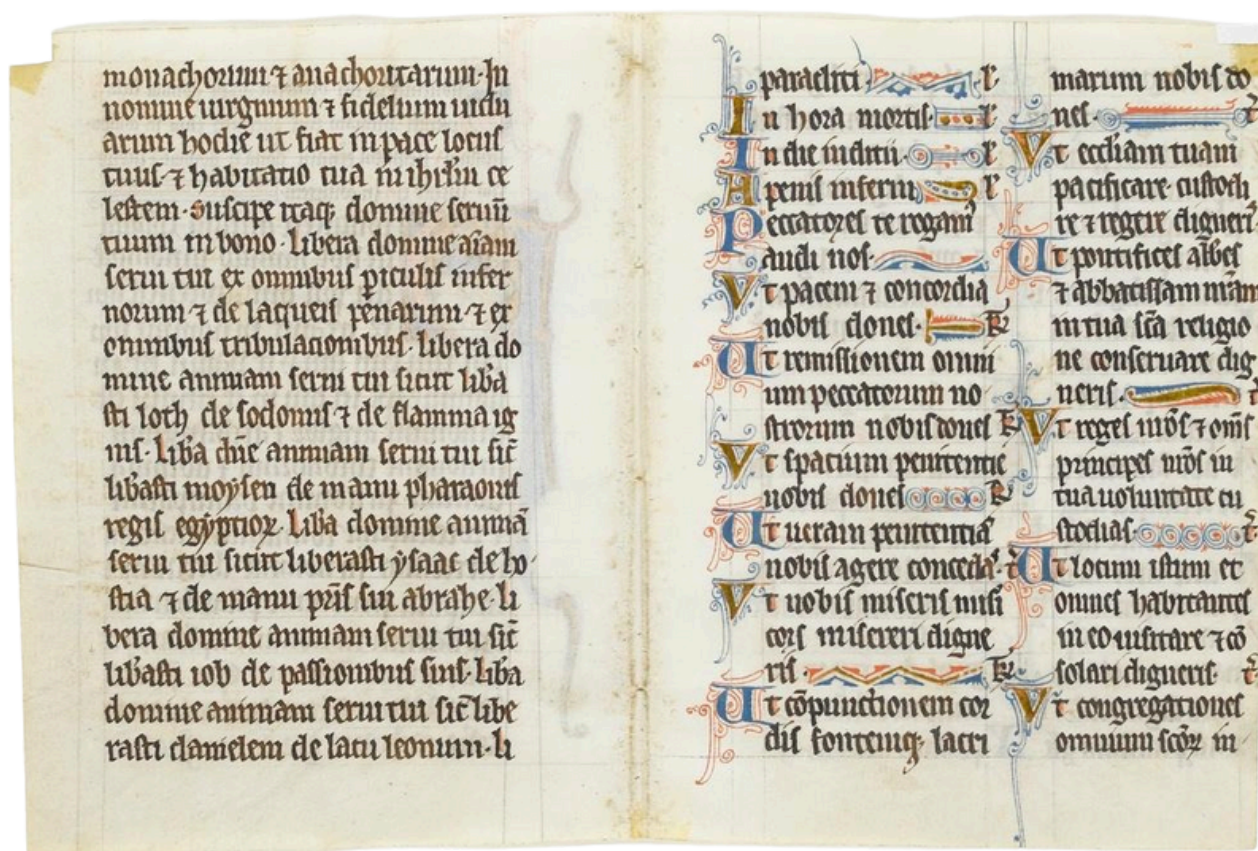 monachorum ⁊ anachoritarum· In
nomine uirginum ⁊ fidelium uidu
arum hodie ut fiat in pace locus
tuus· ⁊ habitatio tua in ihrl'm ce
lestem· Suscipe itaq; domine seruū
tuum in bono· libera domine aīam
serui tui ex omnibus piculis infer
norum ⁊ de laqueis penarum· ⁊ ex
omnibus tribulationibus· libera do
mine animam serui tui sicut lib'a
sti loth de sodomis ⁊ de flamma ig
nis· Lib'a dn̄e animam serui tui sic̄
lib'asti moysen de manu pharaonis
regis egyptioꝝ· Lib'a domine animā
serui tui sicut liberasti ysaac de ho
stia ⁊ de manu pr̄is sui abrahe· li
bera domine animam serui tui sic̄
lib'asti iob de passionibus suis· lib'a
domine animam serui tui sic̄ libe
rasti danielem de lacu leonum· li
paracliti l'
In hora mortis· l'
In die iudicii· l'
A penis inferni l'
Peccatores te rogam'
audi nos·
Vt pacem ⁊ concordiā
nobis dones· R̄
Ut remissionem omni
um peccatorum no
strorum nobis dones R̄
Vt spacium penitentie
nobis dones R̄
Ut ueram penitentiā
nobis agere concedas· t̄
Vt nobis miseris misi
cors misereri digne
ris· R̄
Ut cōpunctionem cor
dis fontemq; lacri
marum nobis do
nes· t̄
Vt eccl'iam tuam
pacificare custodi
re ⁊ regere digneri·
Ut pontifices abb'es
⁊ abbatissam nr̄am
in tua sc̄a religio
ne conseruare dig
neris· t̄
Vt reges nr̄os ⁊ om̄s
principes nr̄os in
tua uoluntate cu
stodias· t̄
Ut locum istum et
omnes habitantes
in eo uisitare ⁊ cō
solari digneris· t̄
Vt congregationes
omnium sc̄oꝝ in